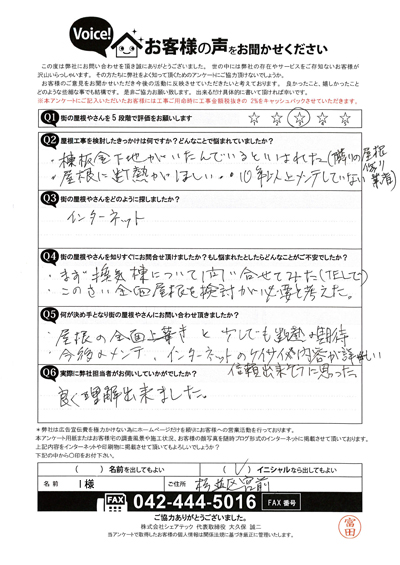 Voice!
お客様の声をお聞かせください
この度は弊社にお問い合わせを頂き誠にありがとうございました。世の中には弊社の存在やサービスをご存知ないお客様が
沢山いらっしゃいます。その方たちに弊社をよく知って頂くためのアンケートにご協力頂けないでしょうか。
お客様のご意見をお聞かせいただき今後の活動に反映させていただきたいと考えております。良かったこと、嬉しかったこと
どのような些細な事でも結構です。是非ご協力お願い致します。出来るだけ具体的に書いて頂ければ幸いです。
※本アンケートにご記入いただいたお客様には工事ご用命時に工事金額税抜きの2%をキャッシュバックさせていただきます。
Q1 街の屋根やさんを5段階で評価をお願いします ☆ ☆ ☆ ☆ ☆
Q2 屋根工事を検討したきっかけは何ですか？どんなことで悩まれていましたか？
・棟板金下地がいたんでいるといわれた(隣りの屋根修り業者)
・屋根に断熱がほしい・・10年以上メンテしていない
Q3 街の屋根やさんをどのように探しましたか？
インターネット
Q4 街の屋根やさんを知りすぐにお問合せ頂けましたか？もし悩まれたとしたらどんなことがご不安でしたか？
・まず換気棟について問い合せてみた(TELして)
・このさい全面屋根を検討が必要と考えた。
Q5 何が決め手となり街の屋根やさんにお問い合わせ頂きましたか？
・屋根の全面上葺きと少しでも断熱の期待
・今後のメンテ、インターネットのケイサイ内容が詳しい
信頼出来そうに思った
Q6 実際に弊社担当者がお伺いしていかがでしたか？
良く理解出来ました。
＊弊社は広告宣伝費を極力かけない為にホームページだけを頼りにお客様への営業活動を行っております。
本アンケート用紙またはお客様宅の調査風景や施工状況、お客様の顔写真を随時ブログ形式のインターネットに掲載させて頂いております。
上記内容をインターネットや印刷物に掲載させて頂いてもよろしいでしょうか？
下記の中から〇印をお付下さい。
( )名前を出してもよい (✓)イニシャルなら出してもよい
名前 I様 ご住所 杉並区宮前
FAX 042-444-5016 FAX番号
ご協力ありがとうございました。
株式会社シェアテック 代表取締役 大久保 誠二
当アンケートで取得したお客様の個人情報は関係法規に基づき厳正に管理いたします。
富田